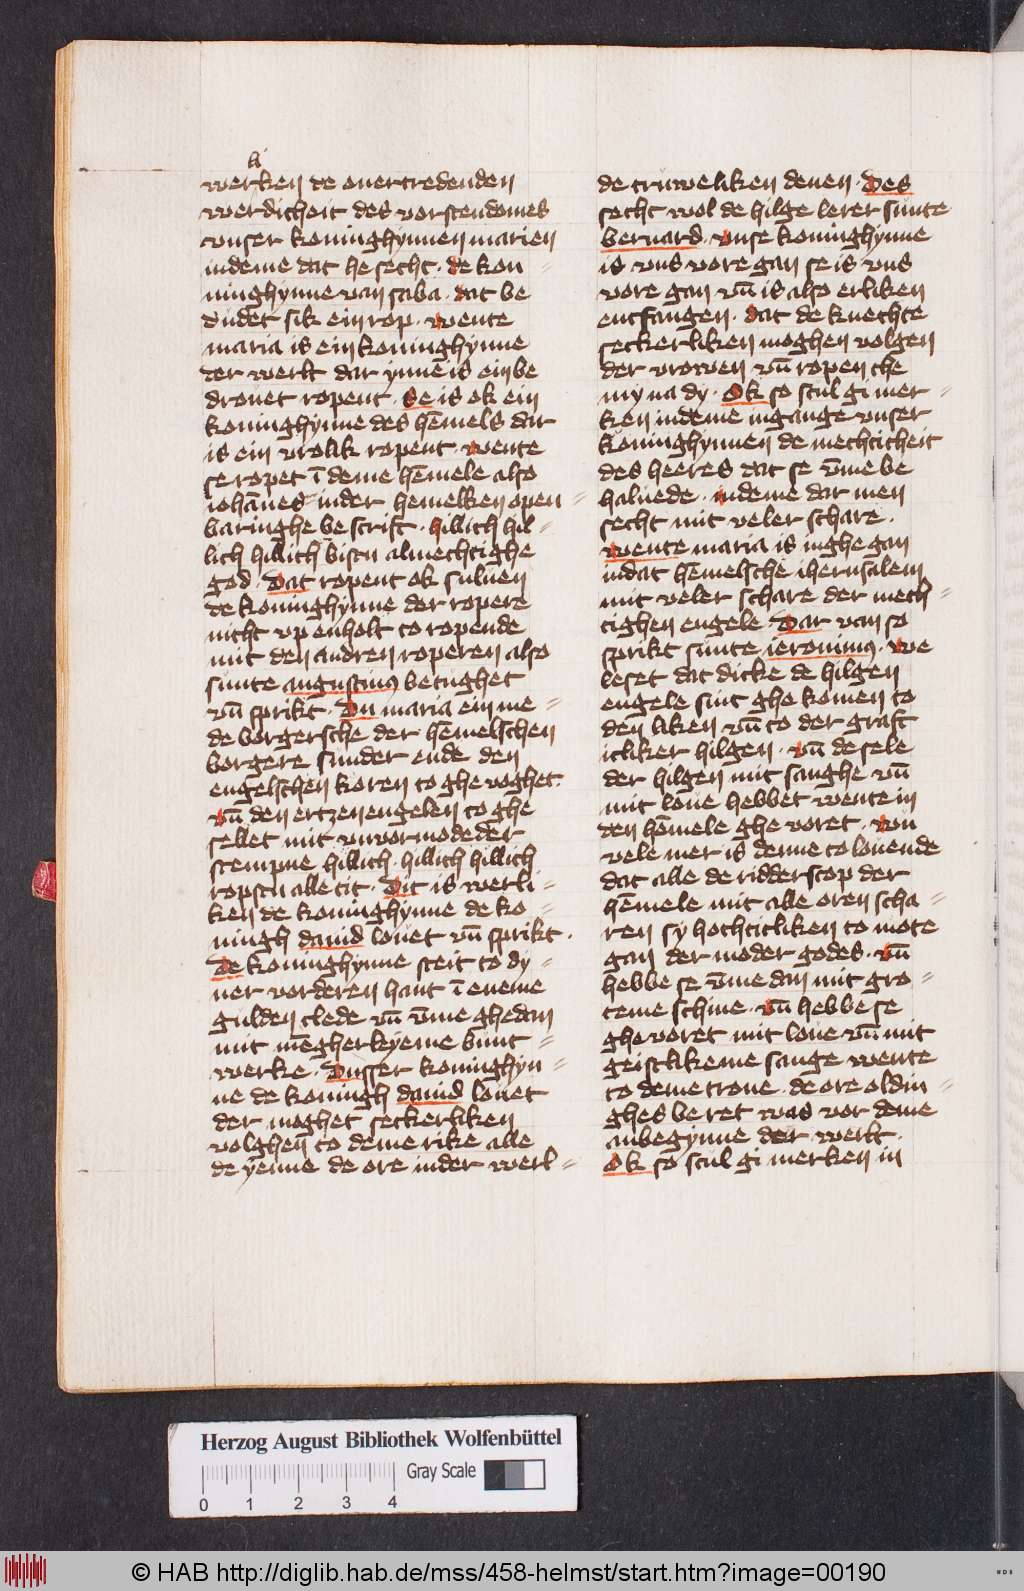 werken de ouertredenden
werdicheit des vorstendomes
vnser koninghynnen marien
indeme dat he secht · de kon=
ninghynne van saba · dat be
dudet sik ein rop · wente
maria is ein koninghynne
der werlt dar ynne is ein be
drouet ropent · Se is ok ein
koninghynne des hēmels dar
is ein vrolik ropent · wente
se ropet ī deme hēmele also
iohānes inder hemelken open=
baringhe bescrift · hillich hil=
lich hillich bistu almechtighe
god · Dat ropent ok suluen
de koninghynne der ropere
nicht vp enholt to ropende
mit den andren roperen also
sunte augustinus betughet
vn̄ sprikt · Du maria ein me=
de borgersche der hēmelschen
borgere sunder ende den
engelschen koren to ghe voghet ·
vn̄ den ertzenengelen to ghe
sellet mit vnvormodeder
stempne hillich · hillich hillich
ropstu alle tit · Dit is werli=
ken de koninghynne de ko=
ningh dauid louet vn̄ sprikt ·
De koninghynne steit to dy=
ner vorderen hant ī eneme
gulden clede vn̄ v̄me ghedan
mit mēgherleyeme bunt=
werke · Dusser koninghyn=
ne de koningh dauid louet
der moghet seckerliken
volghen to deme rike alle
de yenne de ore inder werl=
de truweliken denen · Des
secht wol de hilge lerer sunte
bernard · vnse koninghynne
is vns vore gan se is vns
vore gan vn̄ is also erliken
entfangen · dat de knechte
seckerliken moghen volgen
der vrowen vn̄ ropen the
my na dy · Ok so scul gi mer=
ken indeme ingange vnser
koninghynnen de mechticheit
des heeres dat se v̄me be=
haluede · indeme dar men
secht mit veler schare ·
wente maria is inghe gan
indat hēmelsche iherusalem
mit veler schare der mech=
tighen engele · Dar van so
sprikt sunte ieronimus · we
leset dat dicke de hilgen
engele sint ghe komen to
den liken vn̄ to der graft
itliker hilgen · vn̄ de sele
der hilgen mit sanghe vn̄
mit loue hebbet wente in
den hēmele ghe voret · wu
vele mer is denne to louende
dat alle de ridderscop der
hēmele mit alle oren scha=
ren sy hochtitliken to mote
gan der moder godes · vn̄
hebbe se v̄me dan mit gro=
teme schine · vn̄ hebbe se
ghe voret mit loue vn̄ mit
geistlikeme sange wente
to deme trone · de ore oldin=
ghes beret was vor deme
anbegynne der werlt ·
Ok so scul gi merken in
Herzog August Bibliothek Wolfenbüttel
Gray Scale
0 1 2 3 4
© HAB http://diglib.hab.de/mss/458-helmst/start.htm?image=00190